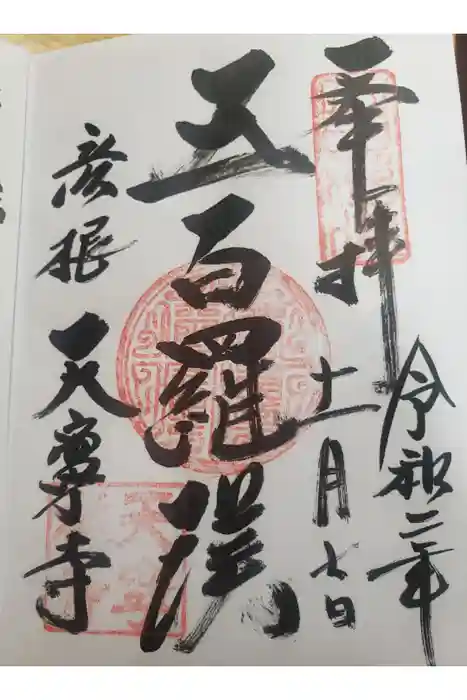 奉拝
令和二年
十一月七日
五百羅漢
彦根
天寧寺